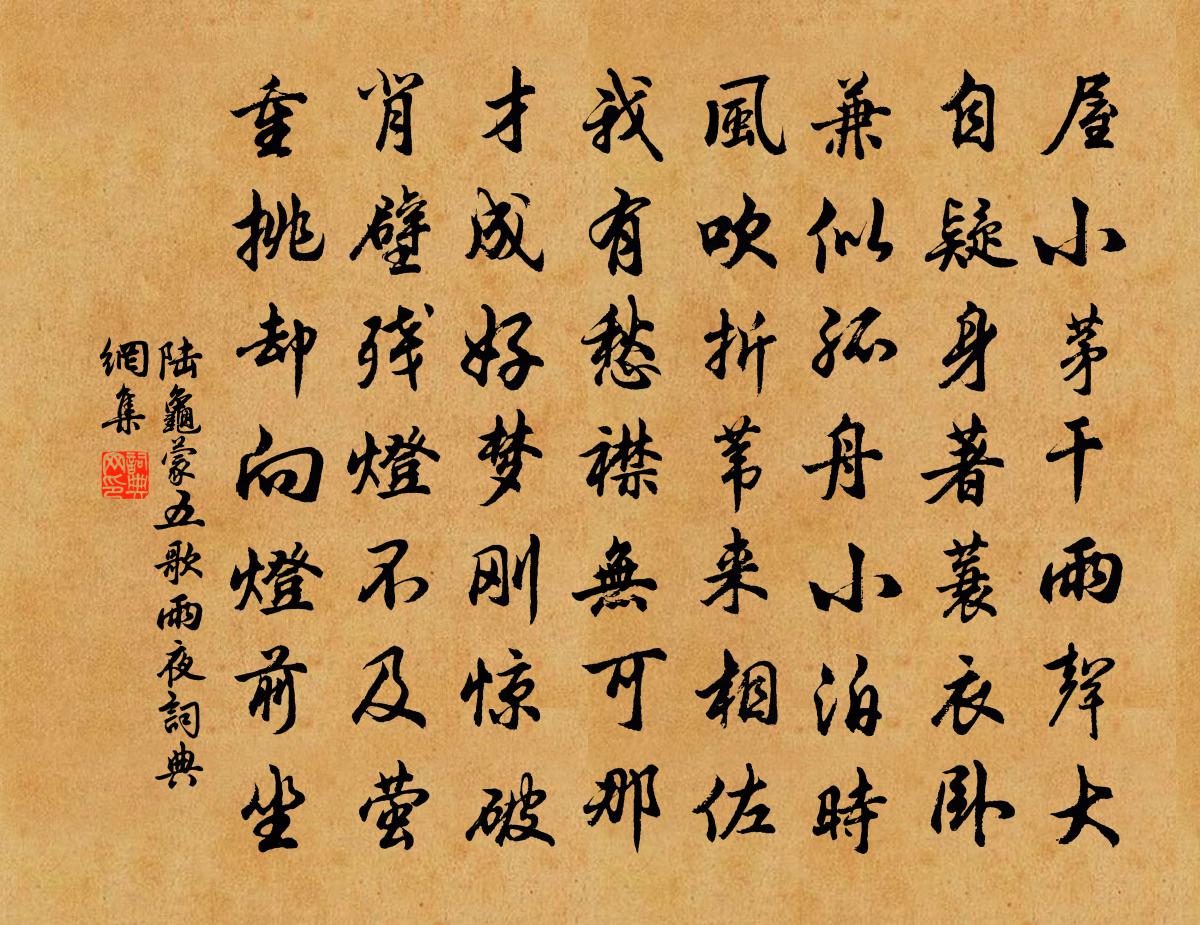 屋小茅干雨聲大
自疑身著蓑衣卧
兼似孤舟小泊時
風吹折苇来相佐
我有愁襟無可那
才成好梦刚惊破
背壁残燈不及萤
重挑却向燈前坐
陆龜蒙五歌雨夜詞典
網集
詞典
网印